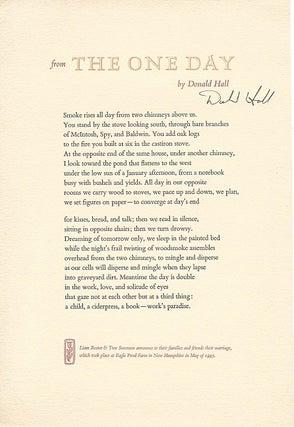 from THE ONE DAY
by Donald Hall
Donald Hall
Smoke rises all day from two chimneys above us.
You stand by the stove looking south, through bare branches
of McIntosh, Spy, and Baldwin. You add oak logs
to the fire you built at six in the castiron stove.
At the opposite end of the same house, under another chimney,
I look toward the pond that flattens to the west
under the low sun of a January afternoon, from a notebook
busy with bushels and yields. All day in our opposite
rooms we carry wood to stoves, we pace up and down, we plan,
we set figures on paper—to converge at day's end
for kisses, bread, and talk; then we read in silence,
sitting in opposite chairs; then we turn drowsy.
Dreaming of tomorrow only, we sleep in the painted bed
while the night's frail twisting of woodsmoke assembles
overhead from the two chimneys, to mingle and disperse
as our cells will disperse and mingle when they lapse
into graveyard dirt. Meantime the day is double
in the work, love, and solitude of eyes
that gaze not at each other but at a third thing:
a child, a ciderpress, a book—work's paradise.
Liam Rector & Tree Swenson announce to their families and friends their marriage,
which took place at Eagle Pond Farm in New Hampshire in May of 1993.